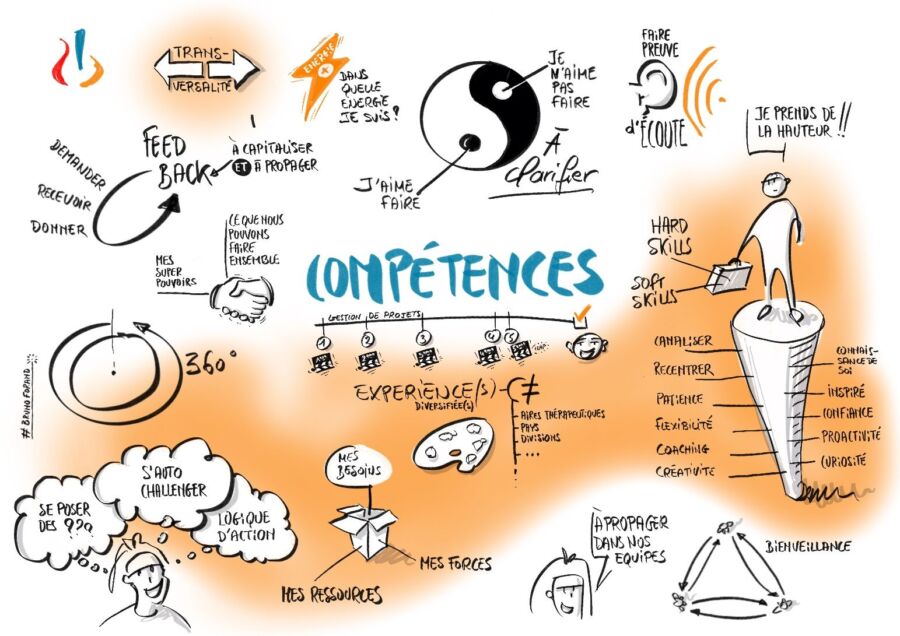 TRANS-
VERSALITÉ
ENERGIE
DANS
QUELLE
ENERGIE
JE SUIS?
JE
N'AIME
PAS
FAIRE
À
clarifier
J'AIME
FAIRE
FAIRE
PREUVE
d'ÉCOUTE
JE PRENDS DE
LA HAUTEUR!!
FEED
BACK
À CAPITALISER
ET À PROPAGER
DEMANDER
RECEVOIR
DONNER
CE QUE NOUS
POUVONS
FAIRE
ENSEMBLE
MES
SUPER
POUVOIRS
COMPÉTENCES
GESTION DE PROJETS
1
2
3
4
5
HARD
SKILLS
SOFT
SKILLS
360°
EXPERIENCE(S)
DIVERSIFIÉE(S)
≠
AIRES THÉRAPEUTIQUES
PAYS
DIVISIONS
...
CANALISER
RECENTRER
PATIENCE
FLEXIBILITÉ
COACHING
CRÉATIVITÉ
CONNAIS-
SANCE DE
SOI
INSPIRÉ
CONFIANCE
PROACTIVITÉ
CURIOSITÉ
SE POSER
DES ???
S'AUTO
CHALLENGER
LOGIQUE
D'ACTION
MES
BESOINS
MES FORCES
MES RESSOURCES
À PROPAGER
DANS NOS
EQUIPES
BIENVEILLANCE